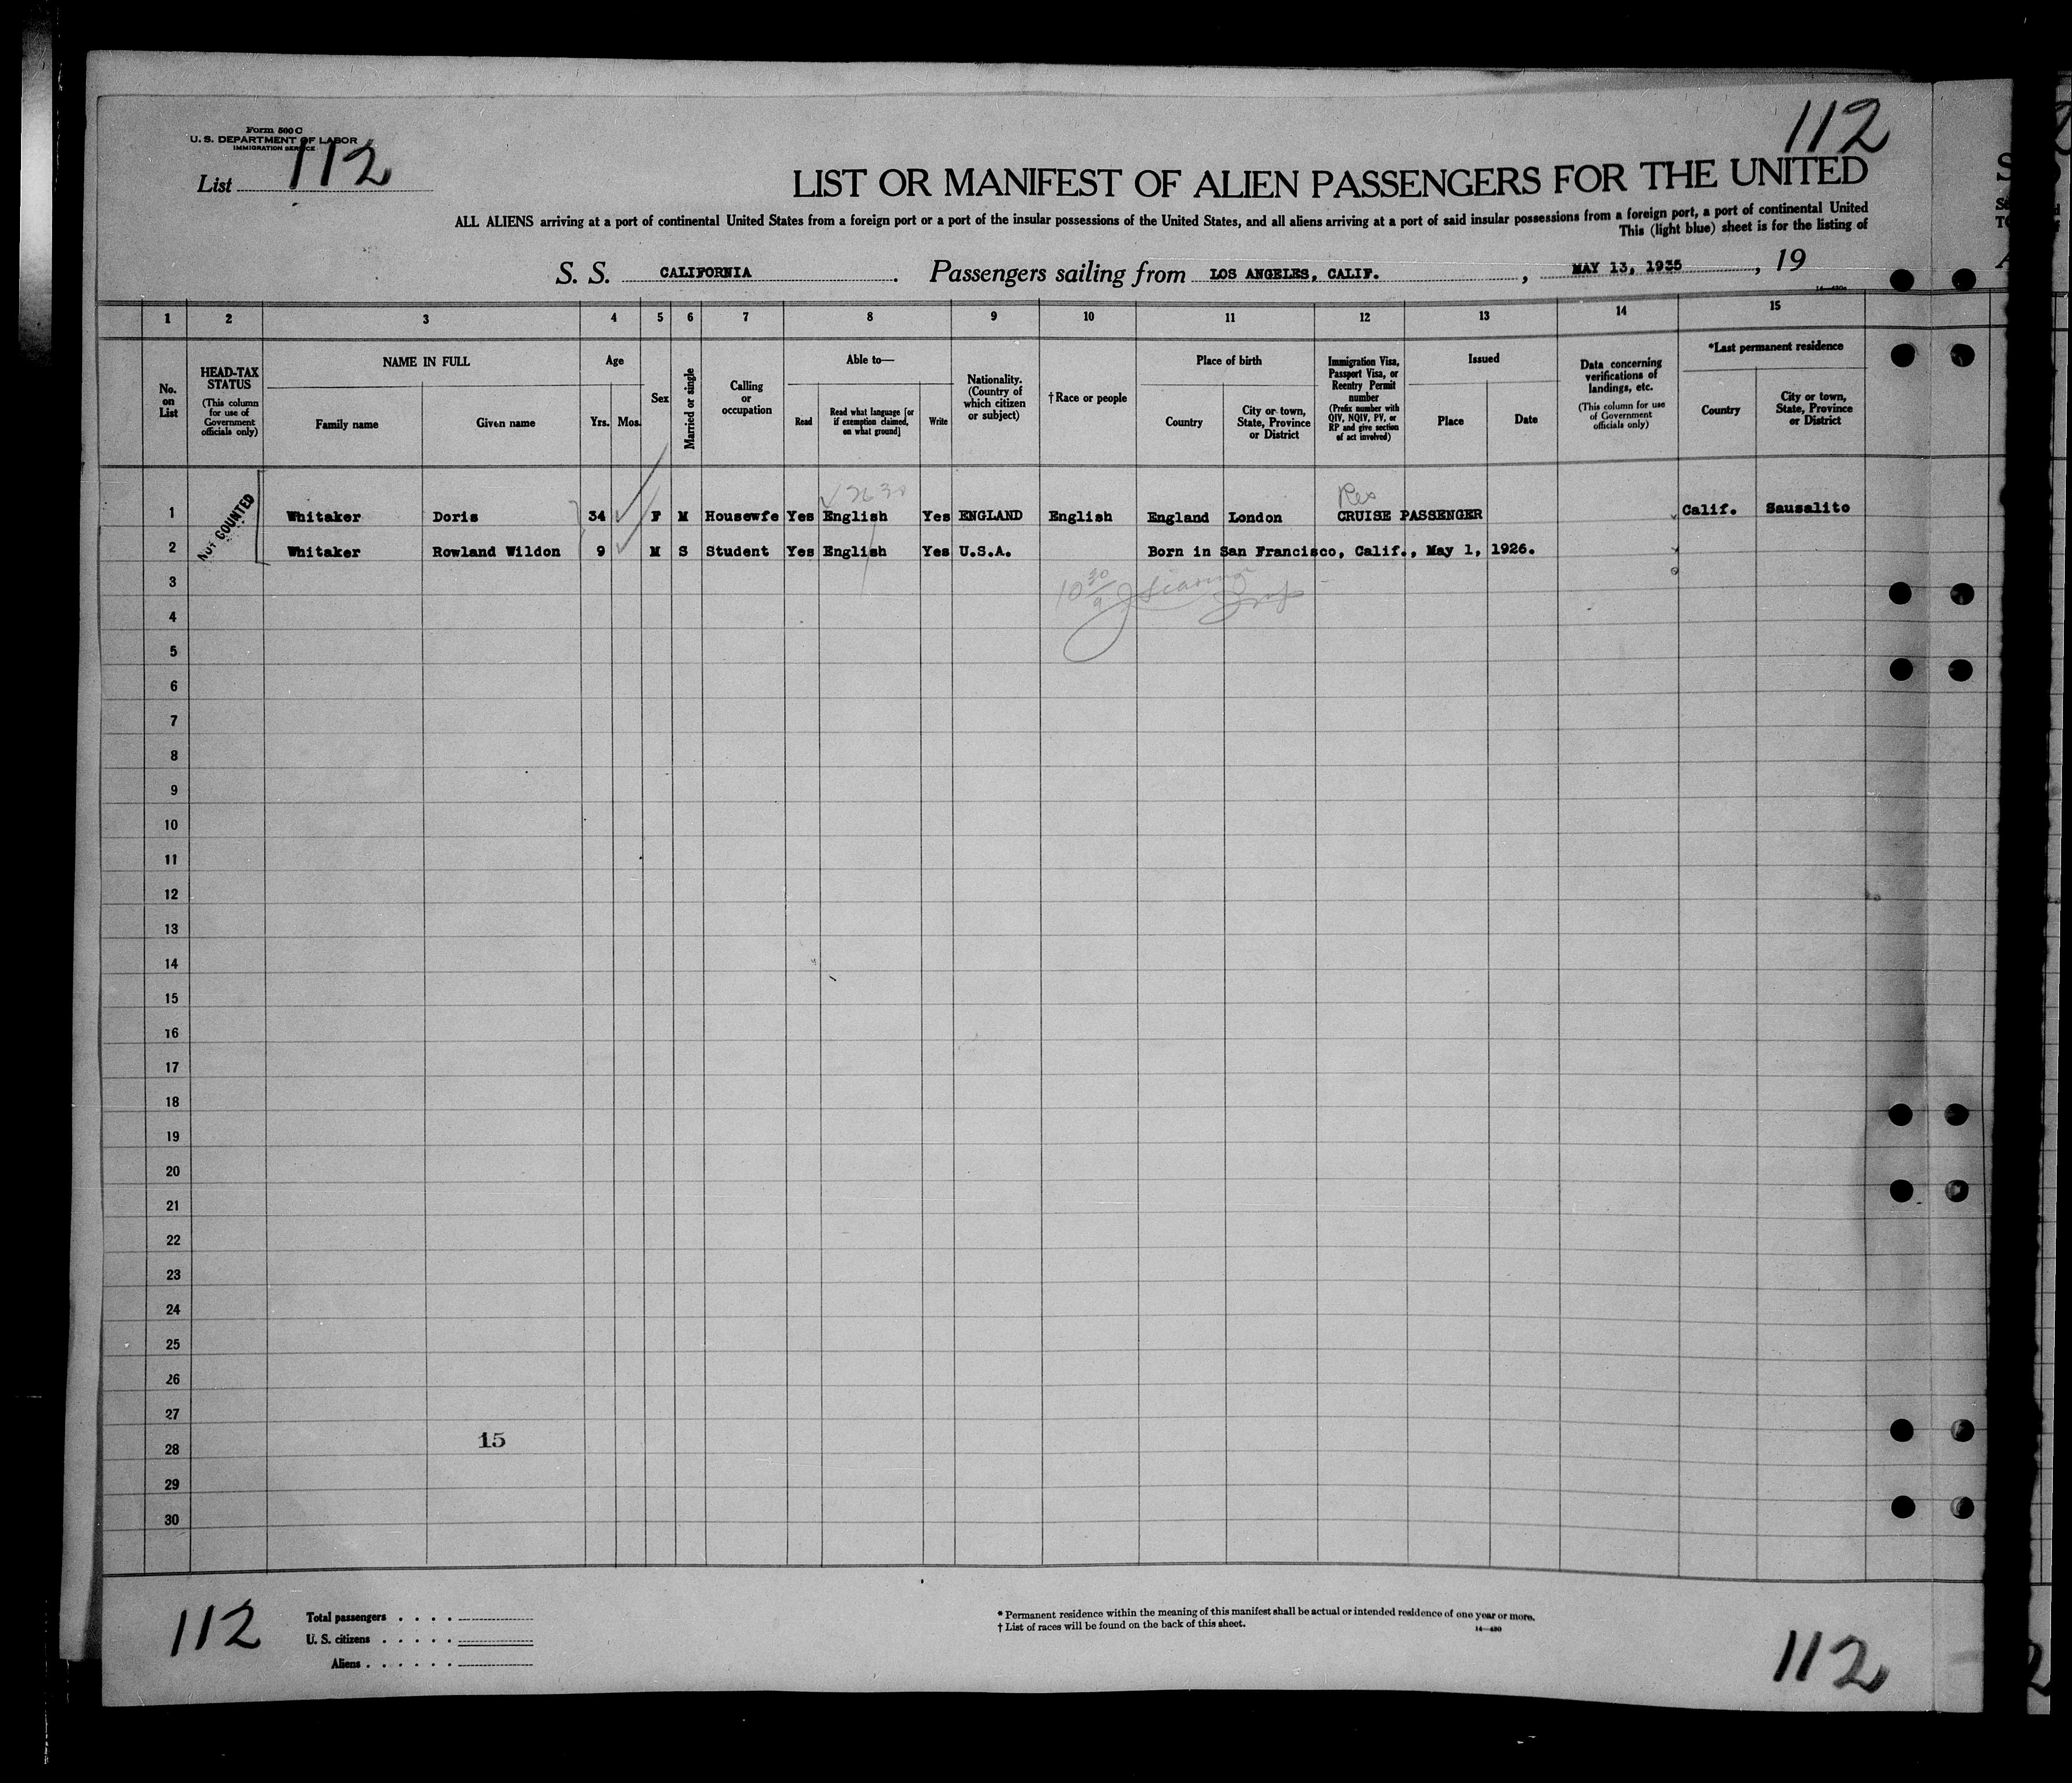 112
Form 500 C
U. S. DEPARTMENT OF LABOR
IMMIGRATION SERVICE
List 112
LIST OR MANIFEST OF ALIEN PASSENGERS FOR THE UNITED
ALL ALIENS arriving at a port of continental United States from a foreign port or a port of the insular possessions of the United States, and all aliens arriving at a port of said insular possessions from a foreign port, a port of continental United
This (light blue) sheet is for the listing of
S. S. CALIFORNIA. Passengers sailing from LOS ANGELES, CALIF., MAY 13, 1935, 19
14—430a
1 2 3 4 5 6 7 8 9 10 11 12 13 14 15
No. on List
HEAD-TAX STATUS
(This column for use of Government officials only)
NAME IN FULL
Family name
Given name
Age
Yrs. Mos.
Sex
Married or single
Calling or occupation
Able to—
Read
Read what language [or if exemption claimed, on what ground]
Write
Nationality. (Country of which citizen or subject)
†Race or people
Place of birth
Country
City or town, State, Province or District
Immigration Visa, Passport Visa, or Reentry Permit number
(Prefix number with QIV, NQIV, PV, or RP and give section of act involved)
Issued
Place
Date
Data concerning verifications of landings, etc.
(This column for use of Government officials only)
*Last permanent residence
Country
City or town, State, Province or District
NOT COUNTED
Res
1 Whitaker Doris 34 F M Housewfe Yes English Yes ENGLAND English England London CRUISE PASSENGER Calif. Sausalito
2 Whitaker Rowland Wildon 9 M S Student Yes English Yes U.S.A. Born in San Francisco, Calif., May 1, 1926.
3
4
5
6
7
8
9
10
11
12
13
14
15
16
17
18
19
20
21
22
23
24
25
26
27
15
28
29
30
112
Total passengers . . . .
U. S. citizens . . . . .
Aliens . . . . . .
* Permanent residence within the meaning of this manifest shall be actual or intended residence of one year or more.
† List of races will be found on the back of this sheet.
14—430
112